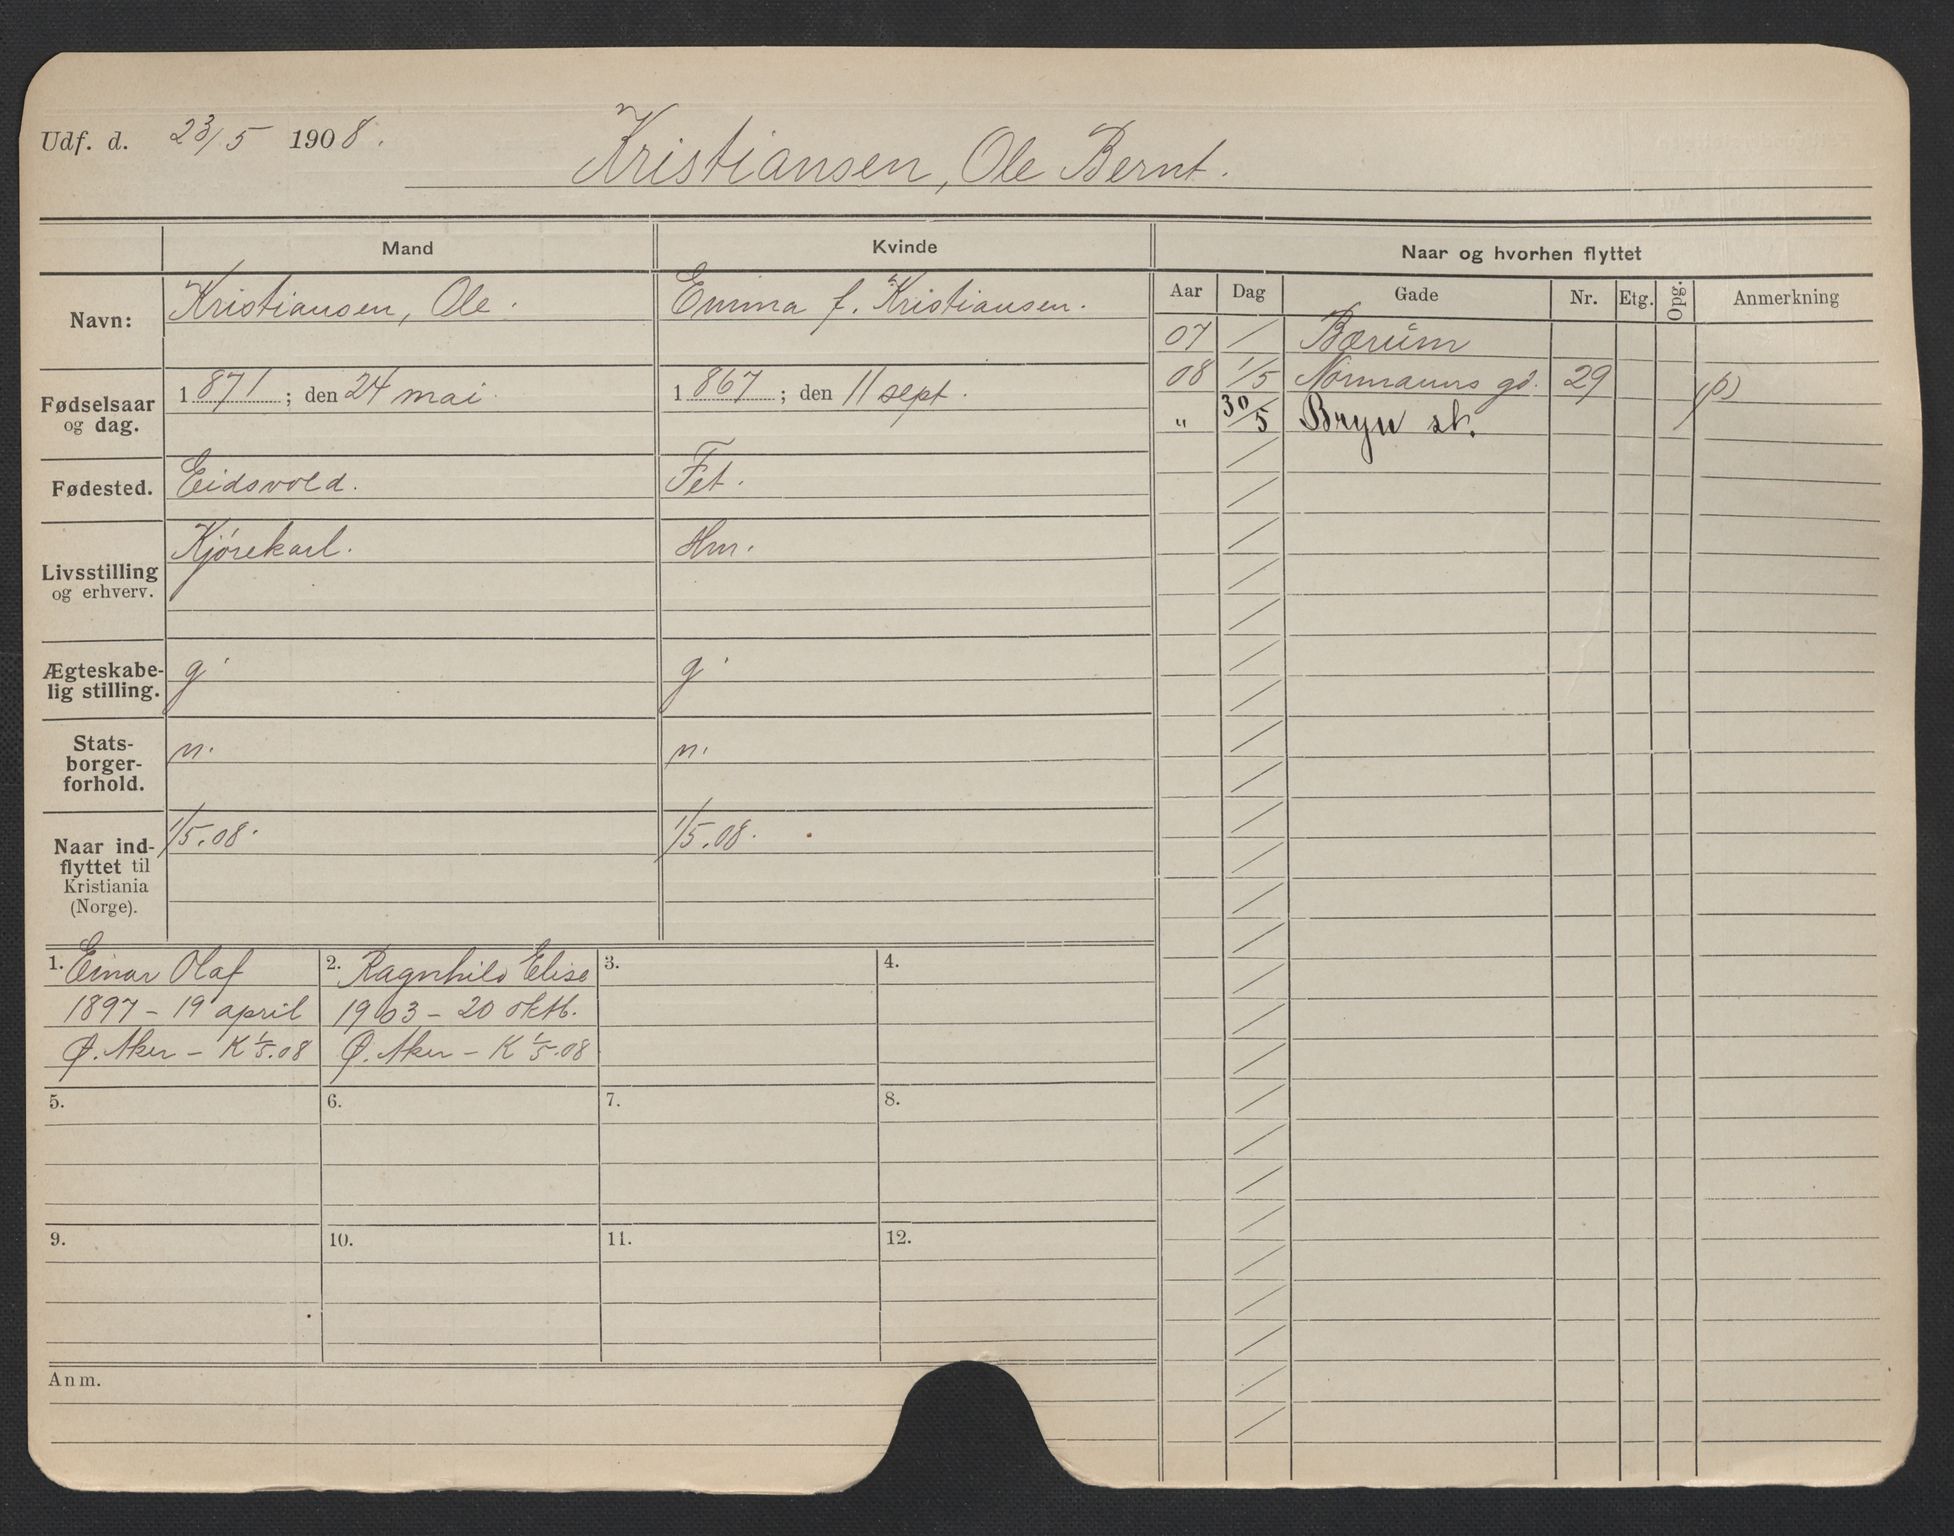 Udf. d. 23/5 1908.
Kristiansen, Ole Bernt.
Mand Kvinde Naar og hvorhen flyttet
Aar Dag Gade Nr. Etg. Opg. Anmerkning
Navn: Kristiansen, Ole. Emma f. Kristiansen.
07 / Bærum
08 1/5 Normanns gd. 29 (p)
" 30/5 Bryn st.
Fødselsaar og dag. 1871; den 24 mai. 1867; den 11 sept.
Fødested. Eidsvold. Fet.
Livsstilling og erhverv. Kjørekarl. Hm.
Ægteskabe-
lig stilling. g. g.
Stats-
borger-
forhold. n. n.
Naar ind-
flyttet til
Kristiania
(Norge). 1/5.08. 1/5.08.
1. Einar Olaf
1897 - 19 april
Ø. Aker - K 1/5.08
2. Ragnhild Elise
1903 - 20 oktb.
Ø. Aker - K 1/5.08
3.
4.
5.
6.
7.
8.
9.
10.
11.
12.
Anm.